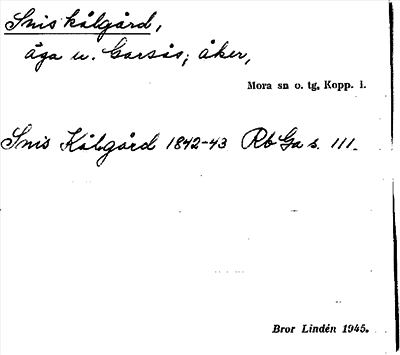 Sniskålgård,
äga u. Garsås; åker,
Mora sn o. tg, Kopp. l.
Snis Kålgård 1842-43 Rb Ga s. 111.
Bror Lindén 1945.